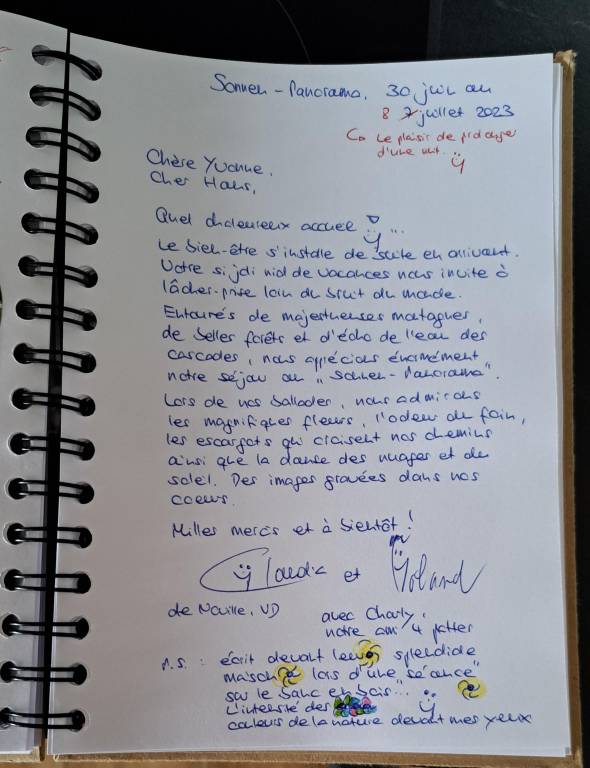 Sonnen-Panorama, 30 juin au
8 7 juillet 2023
Le plaisir de prolonger
d'une nuit.
Chère Yvonne,
Cher Hans,
Quel chaleureux accueil ! ...
Le bien-être s'installe de suite en arrivant.
Votre si joli nid de vacances nous invite à
lâcher-prise loin du bruit du monde.
Entourés de majestueuses montagnes,
de belles forêts et d'écho de l'eau des
cascades, nous apprécions énormément
notre séjour au "Sonnen-Panorama".
Lors de nos ballades, nous admirons
les magnifiques fleurs, l'odeur du foin,
les escargots qui croisent nos chemins
ainsi que la danse des nuages et du
soleil. Des images gravées dans nos
coeurs.
Milles mercis et à bientôt !
Claudia et Roland
de Noville, VD
avec Charly,
notre ami 4 pattes
P.S. : écrit devant leur splendide
maison lors d'une "séance"
sur le banc en bois...
L'intensité des
couleurs de la nature devant mes yeux